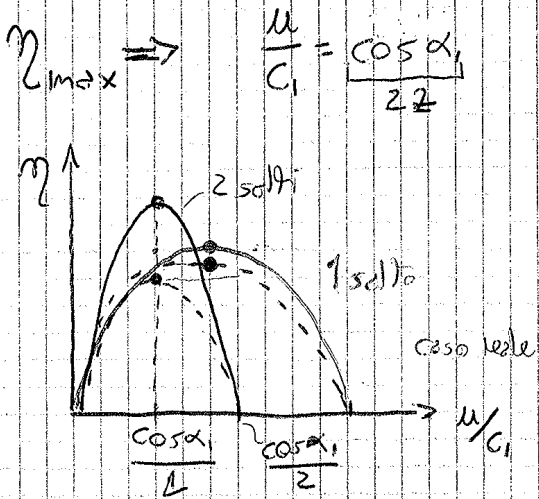 η_max ⇒ u/c₁ = cosα₁/2z
η
2 salti
1 salto
caso reale
u/c₁
cosα₁/4 cosα₁/2